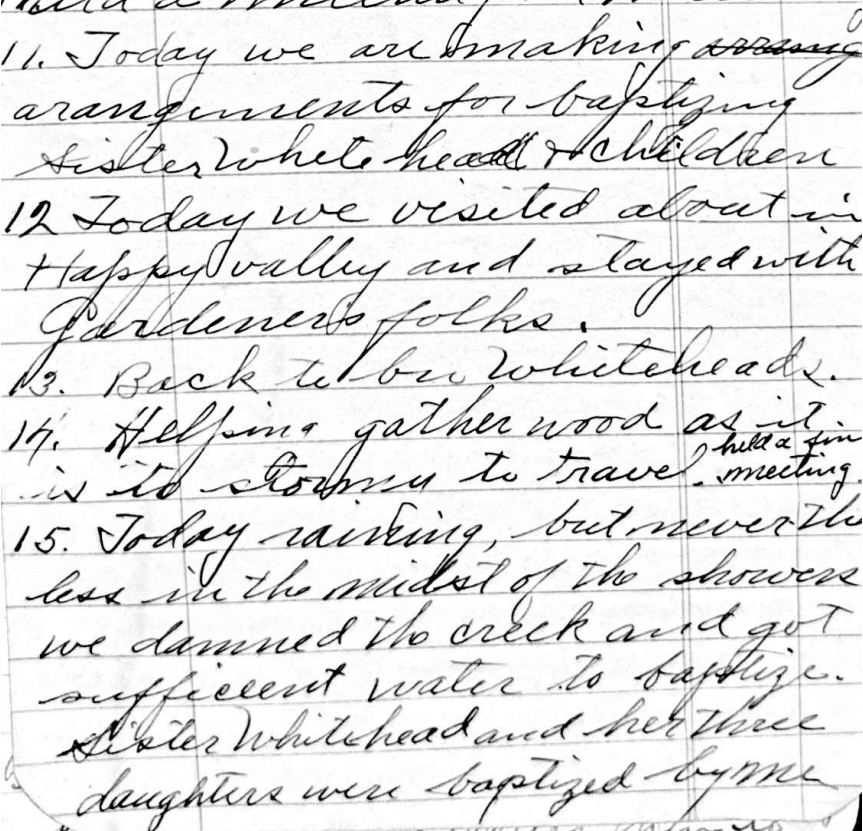 held a meeting
11. Today we are making arrang
arangements for baptizing
Sister Whitehead & children
12 Today we visited about in
Happy valley and stayed with
Gardeners folks.
13. Back to bro Whiteheads.
14. Helping gather wood as it
is to stormy to travel. held a fine meeting.
15. Today raining, but never the
less in the midst of the showers
we damned the creek and got
sufficient water to baptize.
Sister Whitehead and her three
daughters were baptized by me